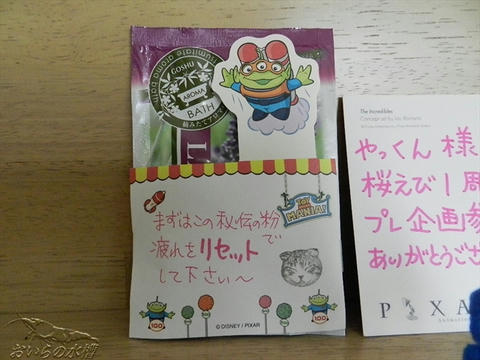 GOSHU
AROMA
BATH
摘みたてアロマ
L
TOY
MANIA!
まずはこの秘伝の粉で
疲れをリセット
して下さい〜
100
100
© DISNEY / PIXAR
The Incredibles
やっくん 様
桜えび1周
プレ企画参
ありがとうござ
PIXA
おいらの水槽